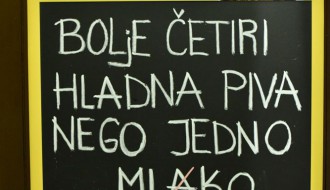 BOLjE ČETIRI
HLADNA PIVA
NEGO JEDNO
MLAKO